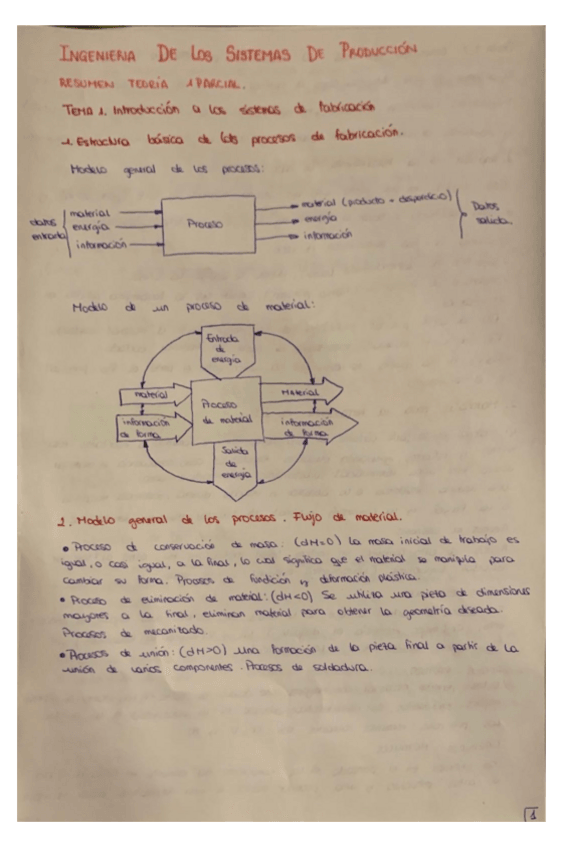 INGENIERIA DE LOS SISTEMAS DE PRODUCCIÓN
RESUMEN TEORIA 1 PARCIAL.
TEMA 1. Introducción a los sistemas de fabricación
1. Estructura básica de los procesos de fabricación.
Modelo general de los procesos:
datos entrada
material
energía
información
Proceso
material (producto + desperdicio)
energía
información
Datos salida.
Modelo de un proceso de material:
Entrada de energía
material
información de forma
Proceso de material
Material
información de forma
Salida de energía
2. Modelo general de los procesos. Flujo de material.
• Proceso de conservación de masa: (dM=0) la masa inicial de trabajo es
igual, o casi igual, a la final, lo cual significa que el material se manipula para
cambiar su forma. Procesos de fundición y deformación plástica.
• Proceso de eliminación de material: (dM<0) Se utiliza una pieza de dimensiones
mayores a la final, eliminan material para obtener la geometría deseada.
Procesos de mecanizado.
• Procesos de unión: (dM>0) una formación de la pieza final a partir de la
unión de varios componentes. Procesos de soldadura.
1